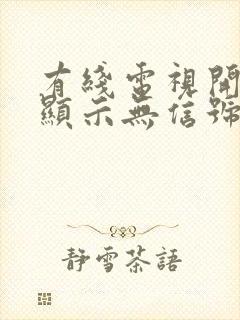 有綫電視開
顯示無信號
靜雪茶語